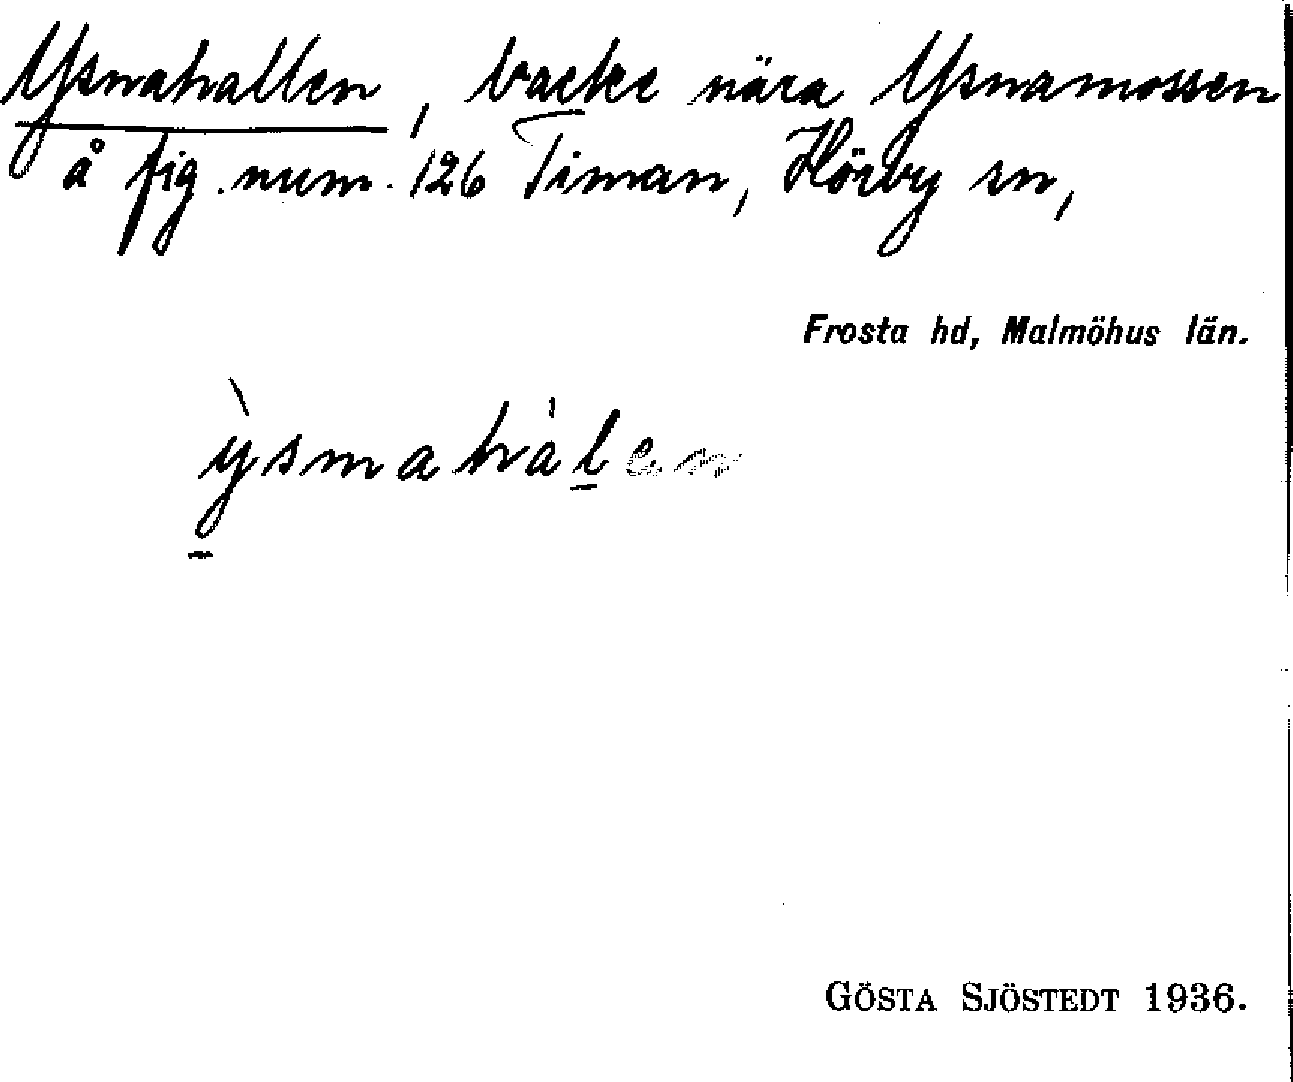 Ysnahallen, backe nära Ysnamossen
å fig. num. 126 Timan, Hörby sn,
Frosta hd, Malmöhus län.
ỳsmahàlen
GÖSTA SJÖSTEDT 1936.